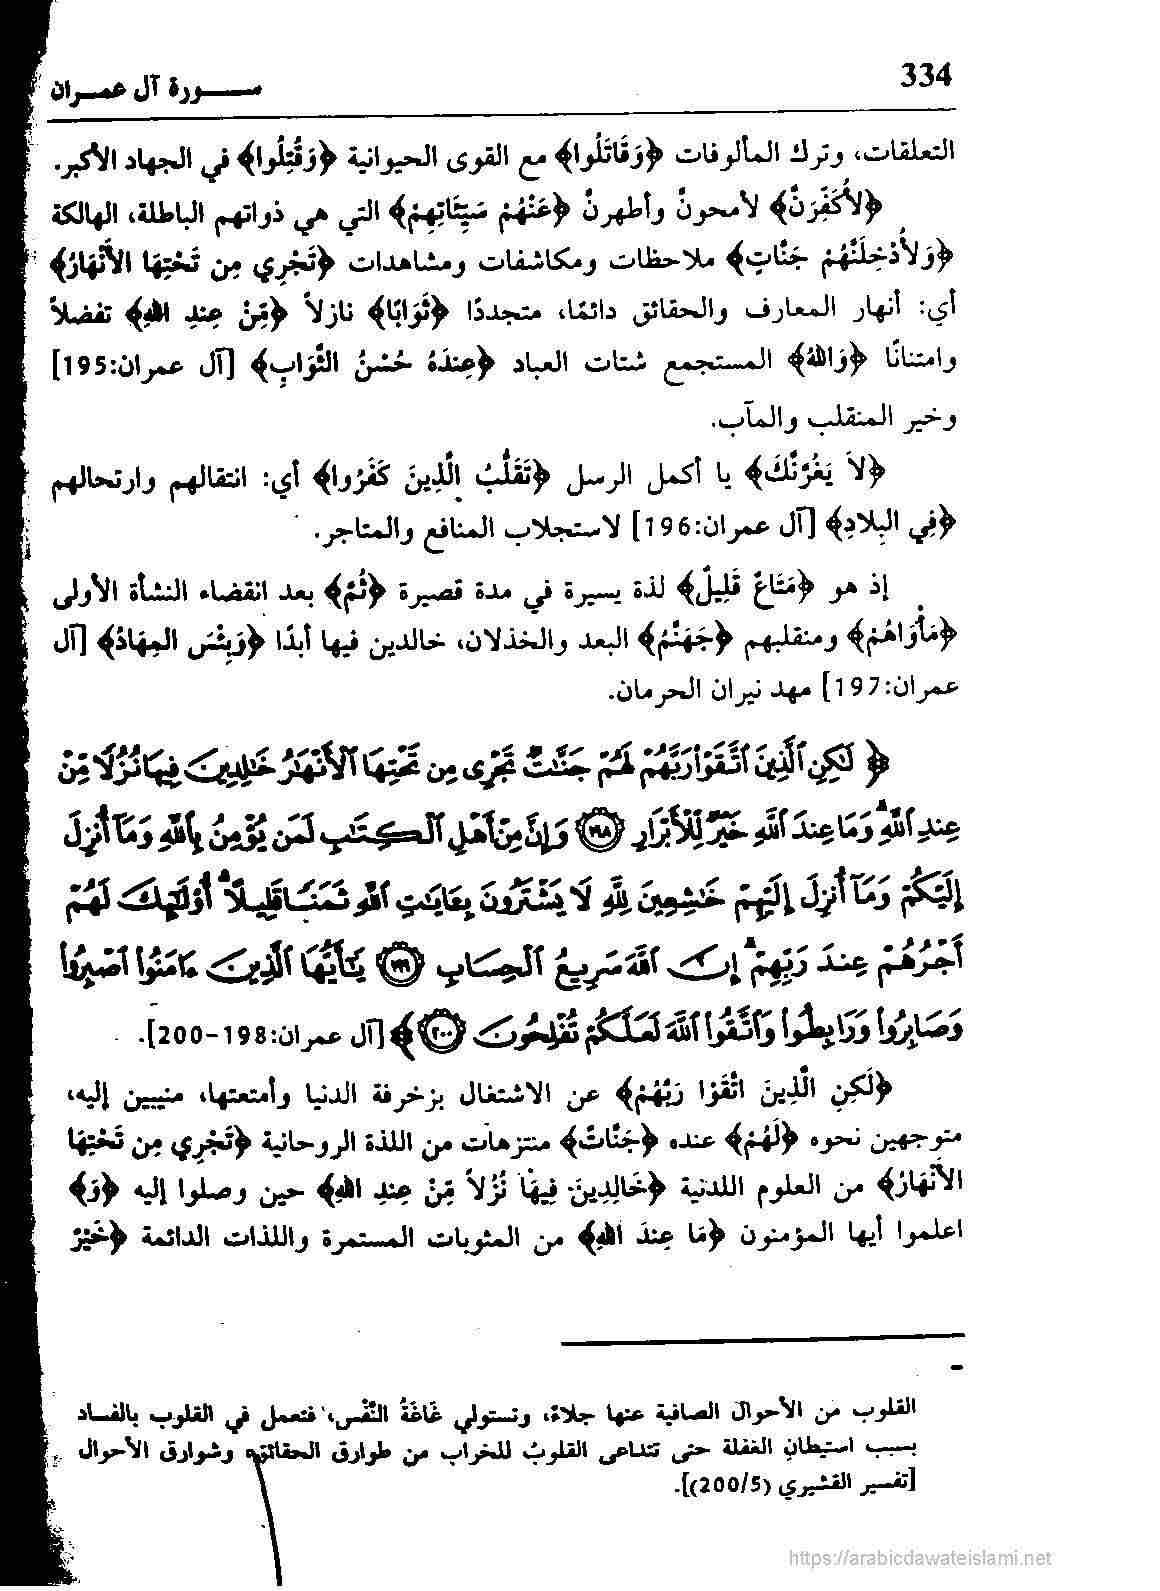 334
ســـورة آل عمـران
التعلقات، وترك المألوفات ﴿وَقَاتَلُوا﴾ مع القوى الحيوانية ﴿وَقُتِلُوا﴾ في الجهاد الأكبر.
﴿لأُكَفِّرَنَّ﴾ لأمحونَّ وأطهرنَّ ﴿عَنْهُمْ سَيِّئَاتِهِمْ﴾ التي هي ذواتهم الباطلة، الهالكة
﴿وَلأُدْخِلَنَّهُمْ جَنَّاتٍ﴾ ملاحظات ومكاشفات ومشاهدات ﴿تَجْرِي مِن تَحْتِهَا الأَنْهَارُ﴾
أي: أنهار المعارف والحقائق دائمًا، متجددًا ﴿ثَوَابًا﴾ نازلاً ﴿مِّنْ عِندِ اللهِ﴾ تفضلاً
وامتنانًا ﴿وَاللهُ﴾ المستجمع شتات العباد ﴿عِندَهُ حُسْنُ الثَّوَابِ﴾ [آل عمران:195]
وخير المنقلب والمآب.
﴿لاَ يَغُرَّنَّكَ﴾ يا أكمل الرسل ﴿تَقَلُّبُ الَّذِينَ كَفَرُوا﴾ أي: انتقالهم وارتحالهم
﴿فِي البِلادِ﴾ [آل عمران:196] لاستجلاب المنافع والمتاجر.
إذ هو ﴿مَتَاعٌ قَلِيلٌ﴾ لذة يسيرة في مدة قصيرة ﴿ثُمَّ﴾ بعد انقضاء النشأة الأولى
﴿مَأْوَاهُمْ﴾ ومنقلبهم ﴿جَهَنَّمُ﴾ البعد والخذلان، خالدين فيها أبدًا ﴿وَبِئْسَ المِهَادُ﴾ [آل
عمران:197] مهد نيران الحرمان.
﴿ لَٰكِنِ ٱلَّذِينَ ٱتَّقَوْا۟ رَبَّهُمْ لَهُمْ جَنَّٰتٌ تَجْرِى مِن تَحْتِهَا ٱلْأَنْهَٰرُ خَٰلِدِينَ فِيهَا نُزُلًا مِّنْ
عِندِ ٱللَّهِ ۗ وَمَا عِندَ ٱللَّهِ خَيْرٌ لِّلْأَبْرَارِ ١٩٨ وَإِنَّ مِنْ أَهْلِ ٱلْكِتَٰبِ لَمَن يُؤْمِنُ بِٱللَّهِ وَمَآ أُنزِلَ
إِلَيْكُمْ وَمَآ أُنزِلَ إِلَيْهِمْ خَٰشِعِينَ لِلَّهِ لَا يَشْتَرُونَ بِـَٔايَٰتِ ٱللَّهِ ثَمَنًا قَلِيلًا ۗ أُو۟لَٰٓئِكَ لَهُمْ
أَجْرُهُمْ عِندَ رَبِّهِمْ ۗ إِنَّ ٱللَّهَ سَرِيعُ ٱلْحِسَابِ ١٩٩ يَٰٓأَيُّهَا ٱلَّذِينَ ءَامَنُوا۟ ٱصْبِرُوا۟
وَصَابِرُوا۟ وَرَابِطُوا۟ وَٱتَّقُوا۟ ٱللَّهَ لَعَلَّكُمْ تُفْلِحُونَ ٢٠٠ ﴾ [آل عمران:198-200].
﴿لَكِنِ الَّذِينَ اتَّقَوْا رَبَّهُمْ﴾ عن الاشتغال بزخرفة الدنيا وأمتعتها، منيبين إليه،
متوجهين نحوه ﴿لَهُمْ﴾ عنده ﴿جَنَّاتٌ﴾ منتزهات من اللذة الروحانية ﴿تَجْرِي مِن تَحْتِهَا
الأَنْهَارُ﴾ من العلوم اللدنية ﴿خَالِدِينَ فِيهَا نُزُلاً مِّنْ عِندِ اللهِ﴾ حين وصلوا إليه ﴿وَ﴾
اعلموا أيها المؤمنون ﴿مَا عِندَ اللهِ﴾ من المثوبات المستمرة واللذات الدائمة ﴿خَيْرٌ
القلوب من الأحوال الصافية عنها جلاءً، وتستولي غَاغَةُ النَّفْس، فتعمل في القلوب بالفساد
بسبب استيطانِ الغفلة حتى تتداعى القلوبُ للخراب من طوارق الحقائق وشوارق الأحوال
[تفسير القشيري (200/5)].
https://arabicdawateislami.net